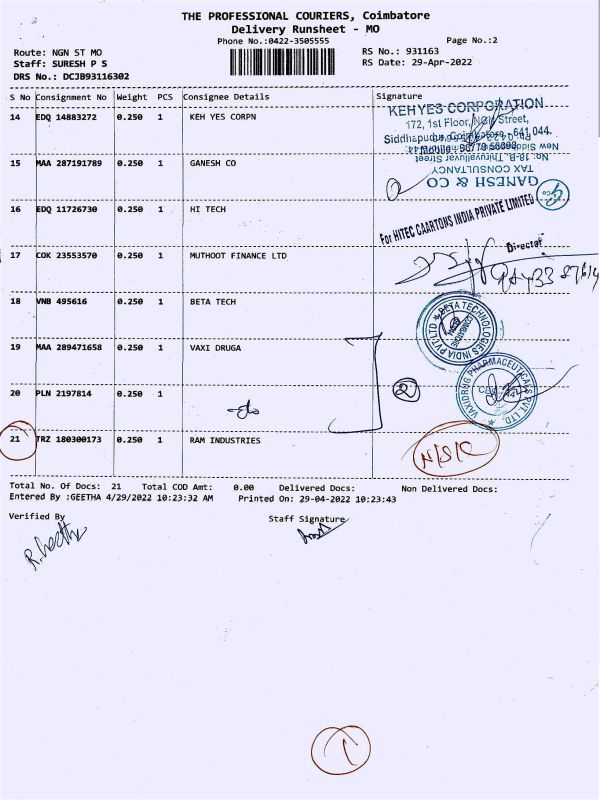 THE PROFESSIONAL COURIERS, Coimbatore
Delivery Runsheet - MO
Phone No.:0422-3505555
Page No.:2
Route: NGN ST MO
RS No.: 931163
Staff: SURESH P S
RS Date: 29-Apr-2022
DRS No.: DCJB93116302
S No Consignment No Weight PCS Consignee Details Signature
14 EDQ 14883272 0.250 1 KEH YES CORPN
KEHYES CORPORATION
172, 1st Floor, NGN Street,
641 044.
15 MAA 287191789 0.250 1 GANESH CO
No: 18-B, Thiruvalluvar Street
TAX CONSULTANCY
GANESH & CO
16 EDQ 11726730 0.250 1 HI TECH
For HITEC CAARTONS INDIA PRIVATE LIMITED
Director
17 COK 23553570 0.250 1 MUTHOOT FINANCE LTD
18 VNB 495616 0.250 1 BETA TECH
BETA TECHNOLOGIES INDIA PVT LTD
COIMBATORE
19 MAA 289471658 0.250 1 VAXI DRUGA
20 PLN 2197814 0.250 1
2
VAXIDRUG PHARMACEUTICALS PVT. LTD.
21 TRZ 180300173 0.250 1 RAM INDUSTRIES
N/S/C
Total No. Of Docs: 21 Total COD Amt: 0.00 Delivered Docs: Non Delivered Docs:
Entered By :GEETHA 4/29/2022 10:23:32 AM Printed On: 29-04-2022 10:23:43
Verified By
Staff Signature
R. Geetha
1